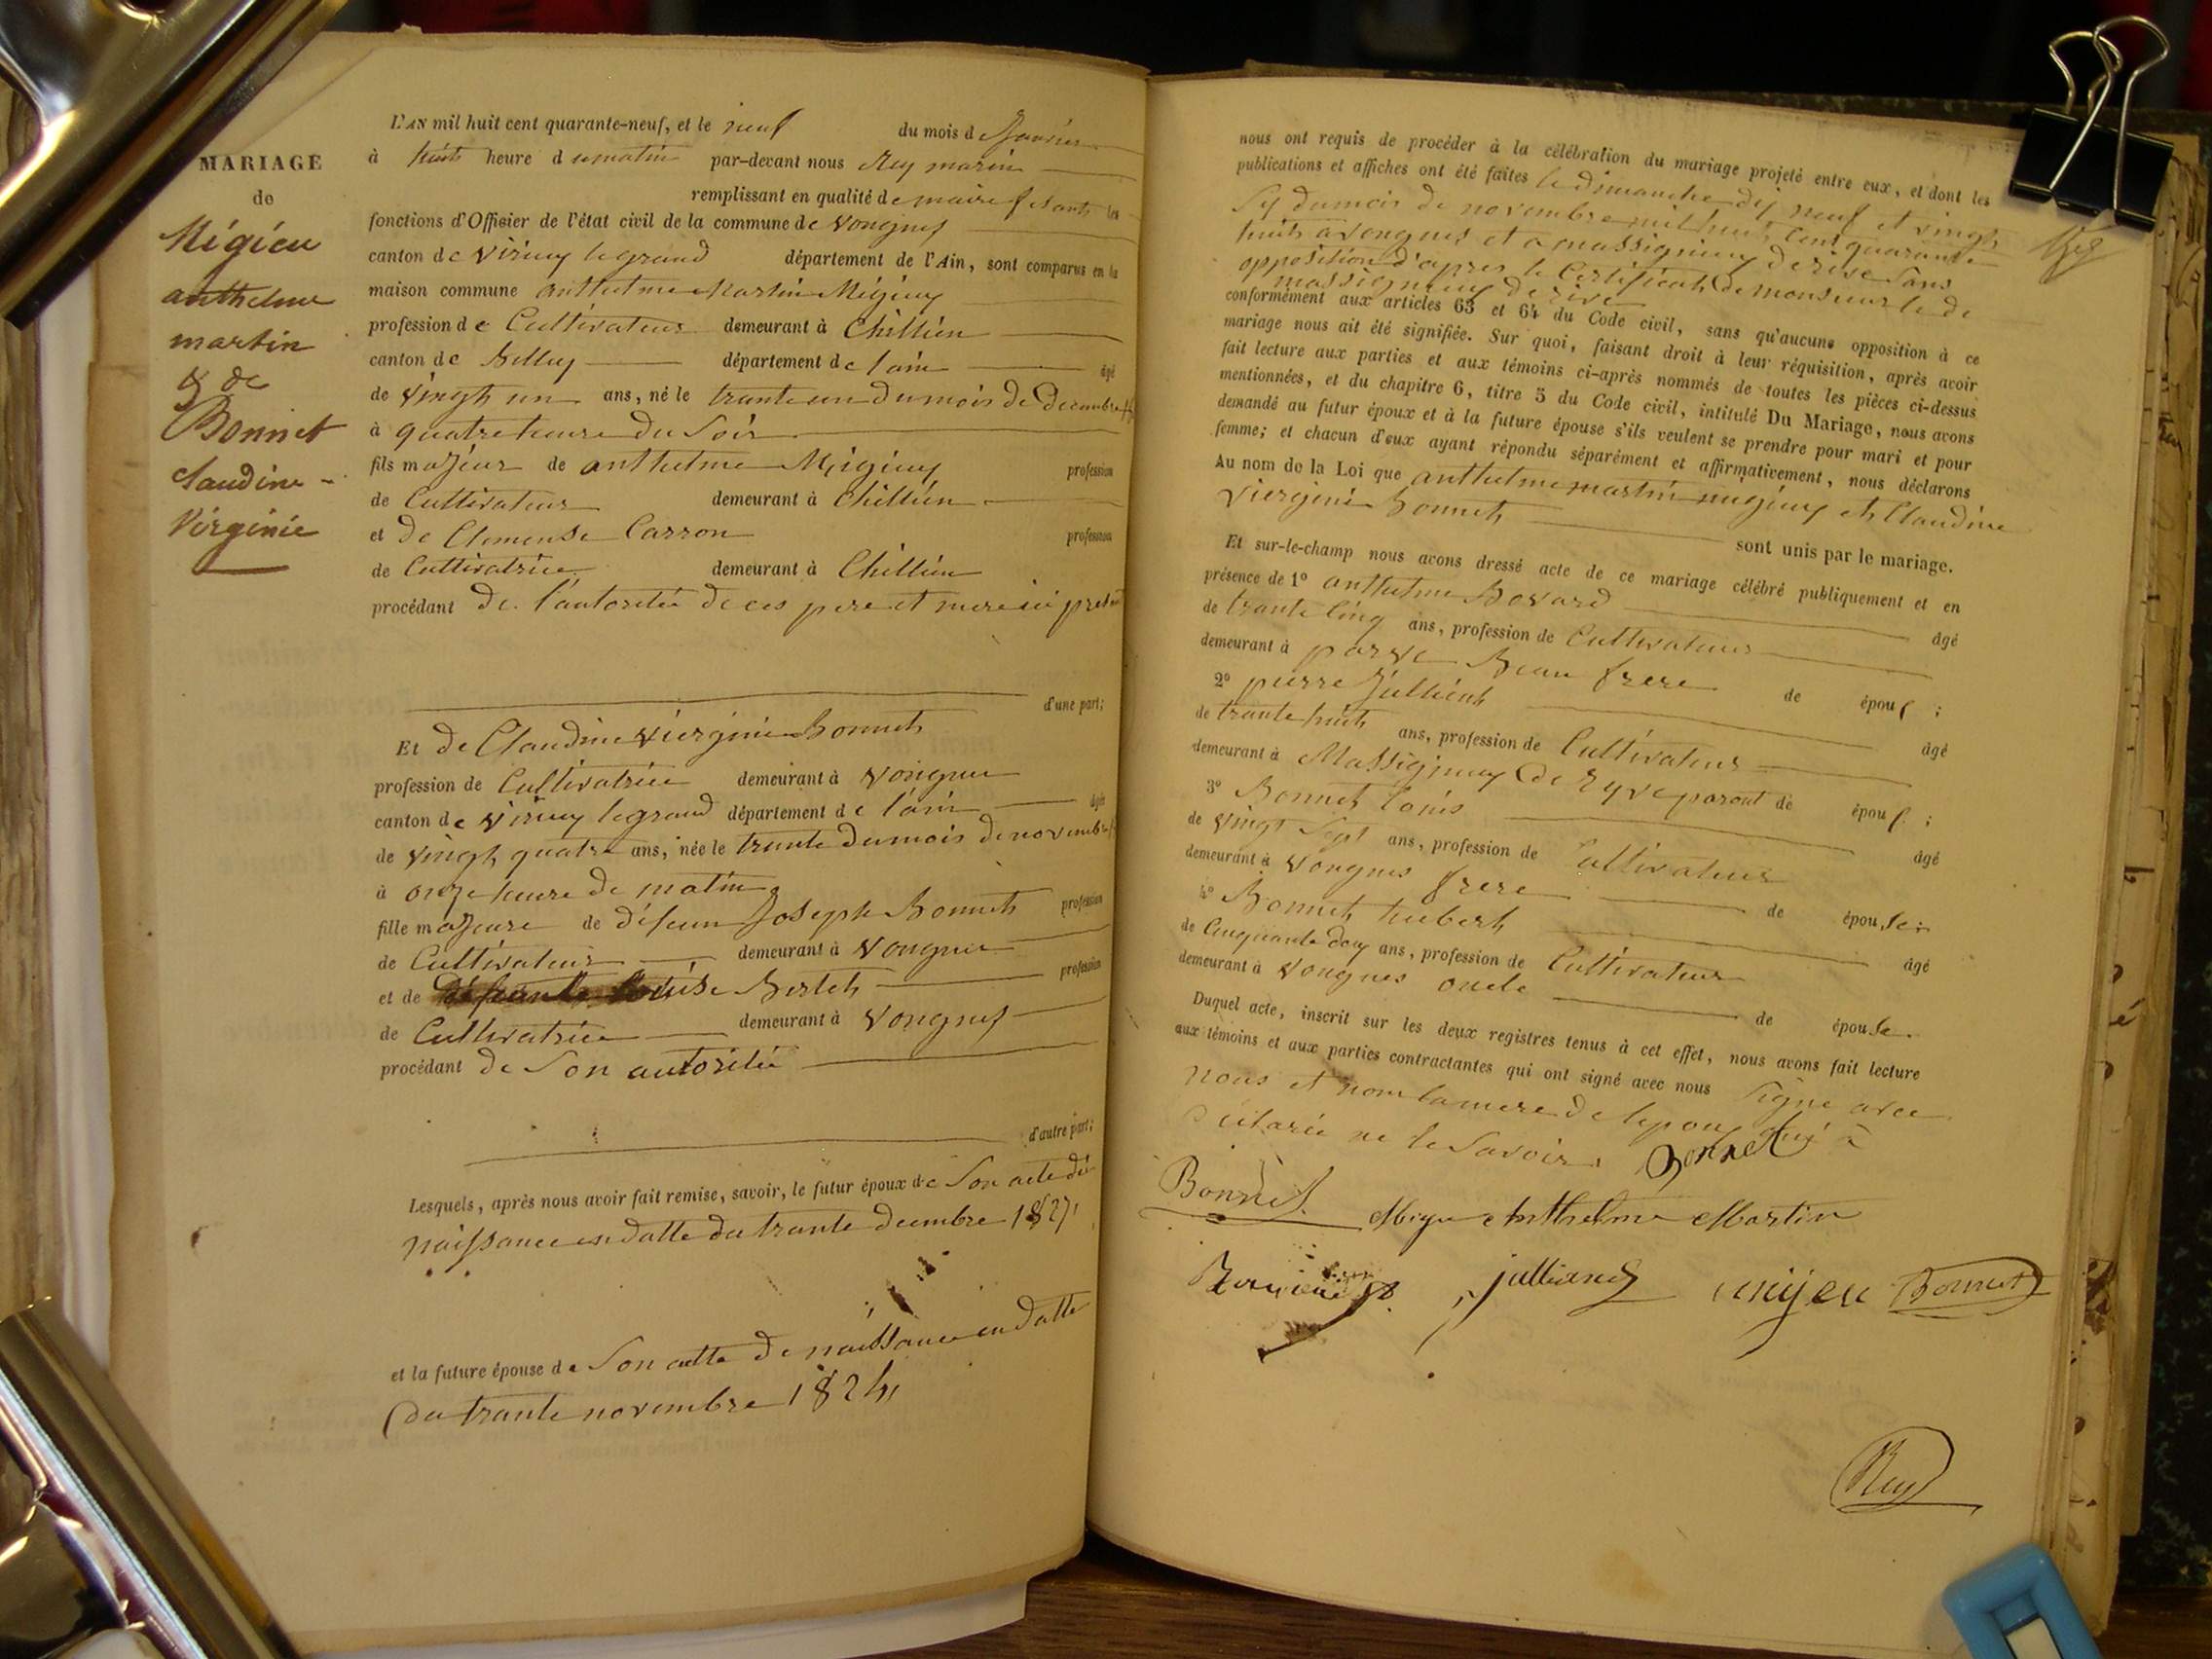 MARIAGE
de
Mégieu
anthelme
martin
& de
Bonnet
Claudine -
Virginie
L'AN mil huit cent quarante-neuf, et le neuf du mois d Janvier
à huit heure d umatin par-devant nous Rey marin
remplissant en qualité de maire fesant les
fonctions d'Officier de l'état civil de la commune de vongnes
canton de virieu legrand département de l'Ain, sont comparus en la
maison commune anthelme Martin Mégieuy
profession de Cultivateur demeurant à Chillieu
canton de Belley département de lain âgé
de vingh un ans, né le trante un du mois de decembre
à quatre heure du Soir
fils majeur de anthelme Mégieuy profession
de Cultivateur demeurant à Chillieu
et de Clemense Carron profession
de Cultivatrice demeurant à Chillieu
procédant de l'autoritée de ces pere et mere ici present
d'une part;
Et de Claudine Viergine Bonneth
profession de Cultivatrice demeurant à vongnes
canton de virieuy legrand département de l'ain âgée
de vingh quatre ans, née le trante dumois de novembre
à onze heure de matin
fille majeure de défeun Joseph Bonneth profession
de Cultivateur demeurant à vongnes
et de Berleth profession
de Cultivatrice demeurant à vongnes
procédant de Son autoritée
d'autre part;
Lesquels, après nous avoir fait remise, savoir, le futur époux de Son acte de
naissance en datte du trante decembre 1827,
et la future épouse de Son atte de naissance en datte
du trante novembre 1824,
nous ont requis de procéder à la célébration du mariage projeté entre eux, et dont les
publications et affiches ont été faites le dimanche dix neuf et vingh
Sy dumois de novembre mil huit cent quarante
huit a vongnes et a massignieuy derive Sans
opposition d'apres le Certificat de monsieur le de
massignieuy de rive
conformément aux articles 63 et 64 du Code civil, sans qu'aucune opposition à ce
mariage nous ait été signifiée. Sur quoi, faisant droit à leur réquisition, après avoir
fait lecture aux parties et aux témoins ci-après nommés de toutes les pièces ci-dessus
mentionnées, et du chapitre 6, titre 5 du Code civil, intitulé Du Mariage, nous avons
demandé au futur époux et à la future épouse s'ils veulent se prendre pour mari et pour
femme; et chacun d'eux ayant répondu séparément et affirmativement, nous déclarons
Au nom de la Loi que anthelme martin migieuy et Claudine
viergini Bonneth
sont unis par le mariage.
Et sur-le-champ nous avons dressé acte de ce mariage célébré publiquement et en
présence de 1° anthelme Bovard âgé
de trante Cinq ans, profession de Cultivateur
demeurant à parve Beau frere de époux ;
2° pierre Jullienh âgé
de trante huit ans, profession de Cultivateur
demeurant à Massignieuy de Ryve parant de époux ;
3° Bonnet louis âgé
de vingt Sept ans, profession de Cultivateur
demeurant à vongnes frere de épouse ;
4° Bonneth hubert âgé
de Cinquante deux ans, profession de Cultivateur
demeurant à vongnes oncle de épouse.
Duquel acte, inscrit sur les deux registres tenus à cet effet, nous avons fait lecture
aux témoins et aux parties contractantes qui ont signé avec nous Signe avec
nous et non la mere de lepoux qui à
déclarée ne le Savoir. Bonnet
Bonnet Migu Anthelme Martin
julliand mijeu Bonnet
Rey